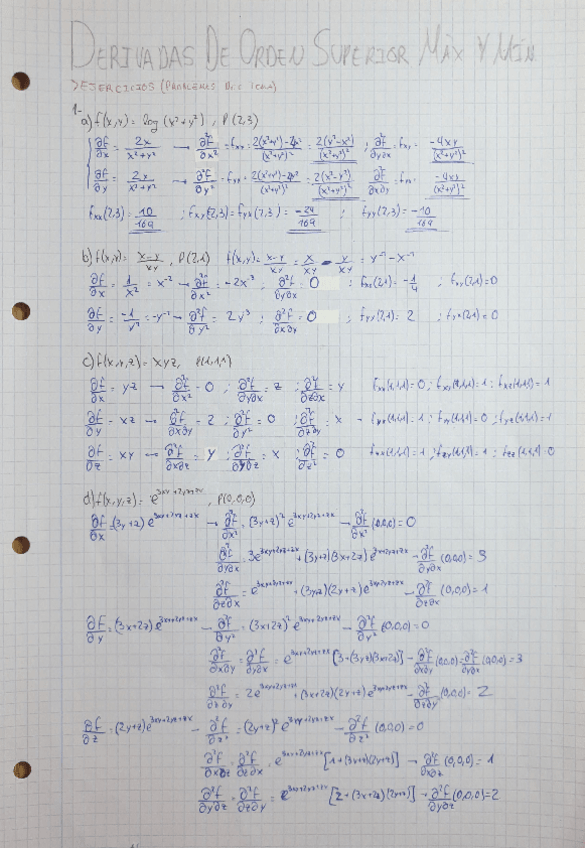 DERIVADAS DE ORDEN SUPERIOR MÁX Y MÍN
> EJERCICIOS (PROBLEMAS DEL TEMA)
1-
a) f(x,y) = log (x²+y²) , P(2,3)
∂f/∂x = 2x/(x²+y²) → ∂²f/∂x² = fxx = (2(x²+y²)-4x²)/(x²+y²)² = 2(y²-x²)/(x²+y²)² ; ∂²f/∂y∂x = fxy = -4xy/(x²+y²)²
∂f/∂y = 2x/(x²+y²) → ∂²f/∂y² = fyy = (2(x²+y²)-4y²)/(x²+y²)² = 2(x²-y²)/(x²+y²)² ; ∂²f/∂x∂y = fyx = -4xy/(x²+y²)²
fxx(2,3) = 10/169 ; fxy(2,3) = fyx(2,3) = -24/169 ; fyy(2,3) = -10/169
b) f(x,y) = (x-y)/xy , P(2,1) f(x,y) = (x-y)/xy = x/xy - y/xy = y⁻¹ - x⁻¹
∂f/∂x = 1/x² = x⁻² → ∂²f/∂x² = -2x⁻³ ; ∂²f/∂y∂x = 0 ; fxx(2,1) = -1/4 ; fxy(2,1) = 0
∂f/∂y = -1/y² = -y⁻² → ∂²f/∂y² = 2y⁻³ ; ∂²f/∂x∂y = 0 ; fyy(2,1) = 2 ; fyx(2,1) = 0
c) f(x,y,z) = xyz , P(1,1,1)
∂f/∂x = yz → ∂²f/∂x² = 0 ; ∂²f/∂y∂x = z ; ∂²f/∂z∂x = y fxx(1,1,1) = 0 ; fxy(1,1,1) = 1 ; fxz(1,1,1) = 1
∂f/∂y = xz → ∂²f/∂x∂y = z ; ∂²f/∂y² = 0 ; ∂²f/∂z∂y = x fyx(1,1,1) = 1 ; fyy(1,1,1) = 0 ; fyz(1,1,1) = 1
∂f/∂z = xy → ∂²f/∂x∂z = y ; ∂²f/∂y∂z = x ; ∂²f/∂z² = 0 fzx(1,1,1) = 1 ; fzy(1,1,1) = 1 ; fzz(1,1,1) = 0
d) f(x,y,z) = e^(3xy+2yz+zx) , P(0,0,0)
∂f/∂x = (3y+z) e^(3xy+2yz+zx) → ∂²f/∂x² = (3y+z)² e^(3xy+2yz+zx) → ∂²f/∂x² (0,0,0) = 0
∂²f/∂y∂x = 3e^(3xy+2yz+zx) + (3y+z)(3x+2z) e^(3xy+2yz+zx) → ∂²f/∂y∂x (0,0,0) = 3
∂²f/∂z∂x = e^(3xy+2yz+zx) + (3y+z)(2y+x) e^(3xy+2yz+zx) → ∂²f/∂z∂x (0,0,0) = 1
∂f/∂y = (3x+2z) e^(3xy+2yz+zx) → ∂²f/∂y² = (3x+2z)² e^(3xy+2yz+zx) → ∂²f/∂y² (0,0,0) = 0
∂²f/∂x∂y = ∂²f/∂y∂x = e^(3xy+2yz+zx) [3+(3y+z)(3x+2z)] → ∂²f/∂x∂y (0,0,0) = ∂²f/∂y∂x (0,0,0) = 3
∂²f/∂z∂y = 2e^(3xy+2yz+zx) + (3x+2z)(2y+x) e^(3xy+2yz+zx) → ∂²f/∂z∂y (0,0,0) = 2
∂f/∂z = (2y+x) e^(3xy+2yz+zx) → ∂²f/∂z² = (2y+x)² e^(3xy+2yz+zx) → ∂²f/∂z² (0,0,0) = 0
∂²f/∂x∂z = ∂²f/∂z∂x = e^(3xy+2yz+zx) [1+(3y+z)(2y+x)] → ∂²f/∂x∂z (0,0,0) = 1
∂²f/∂y∂z = ∂²f/∂z∂y = e^(3xy+2yz+zx) [2+(3x+2z)(2y+x)] → ∂²f/∂y∂z (0,0,0) = 2